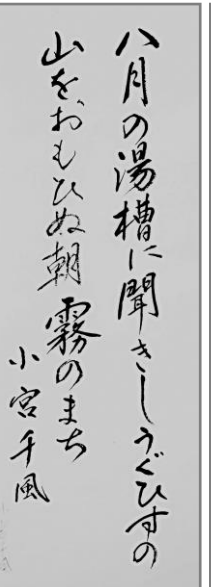 八月の湯槽に聞きしうぐひすの
山をおもひぬ朝霧のまち
小宮千風